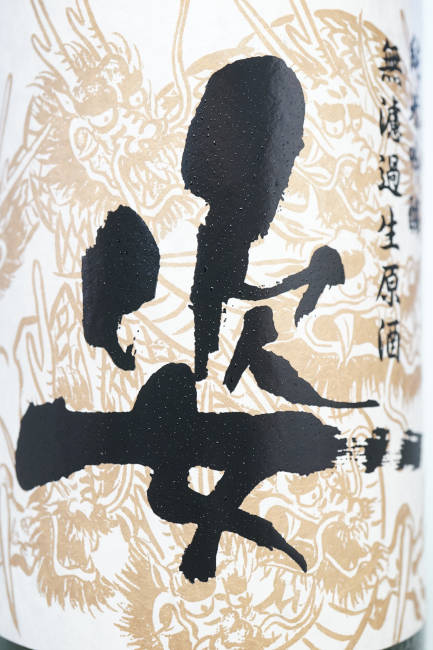 純米吟醸
無濾過生原酒
姿